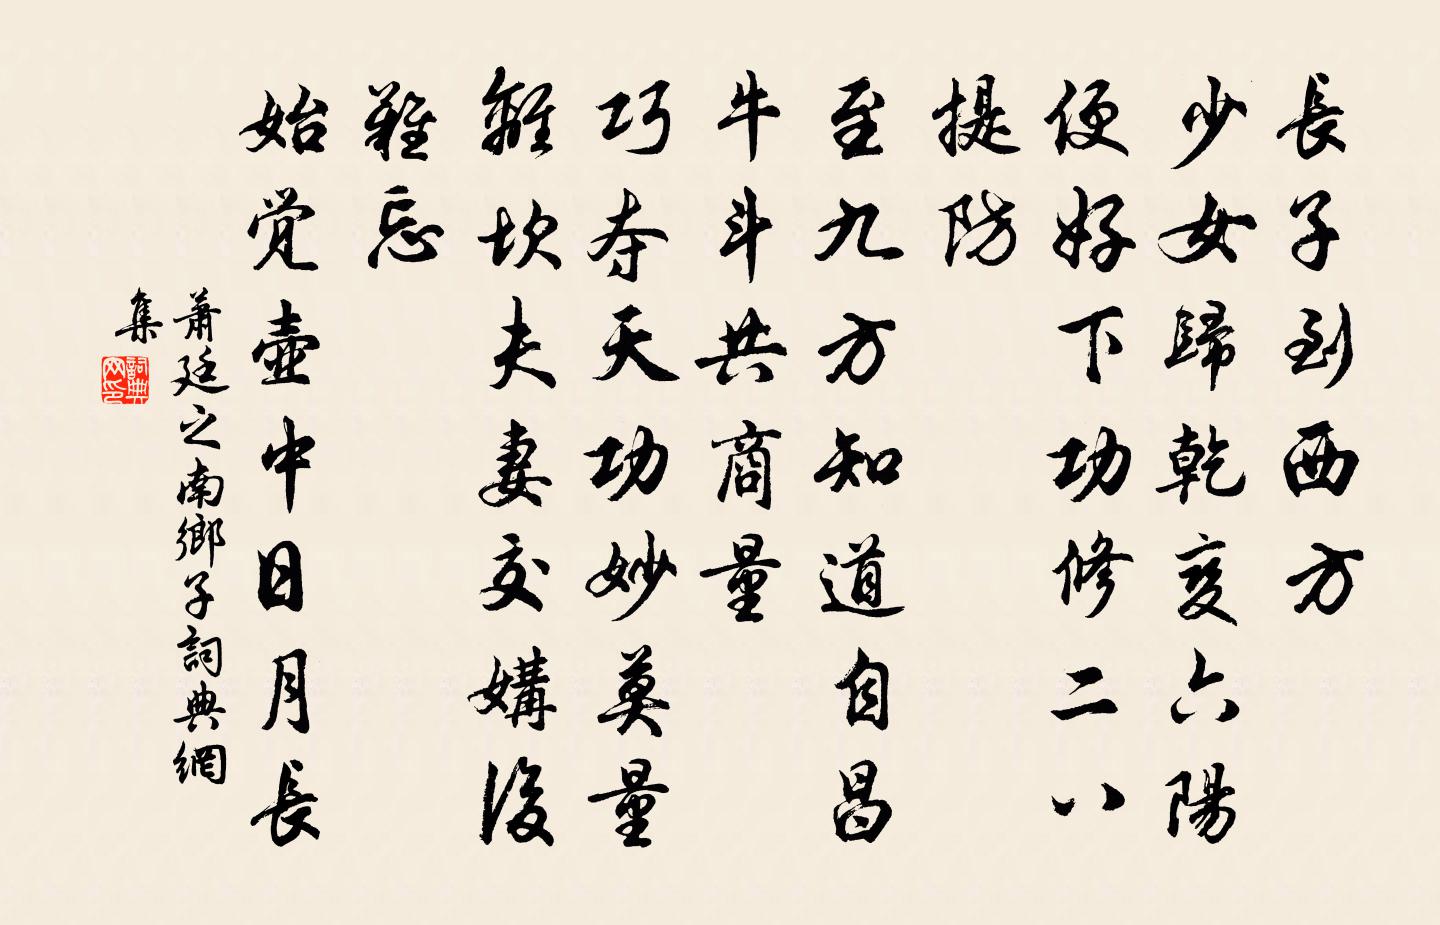 長子到西方
少女歸乾变六陽
便好下功修二八
提防
至九方知道自昌
牛斗共商量
巧夺天功妙莫量
離坎夫妻交媾後
難忘
始觉壺中日月長
蕭廷之南鄉子詞典網
集
詞典
网印